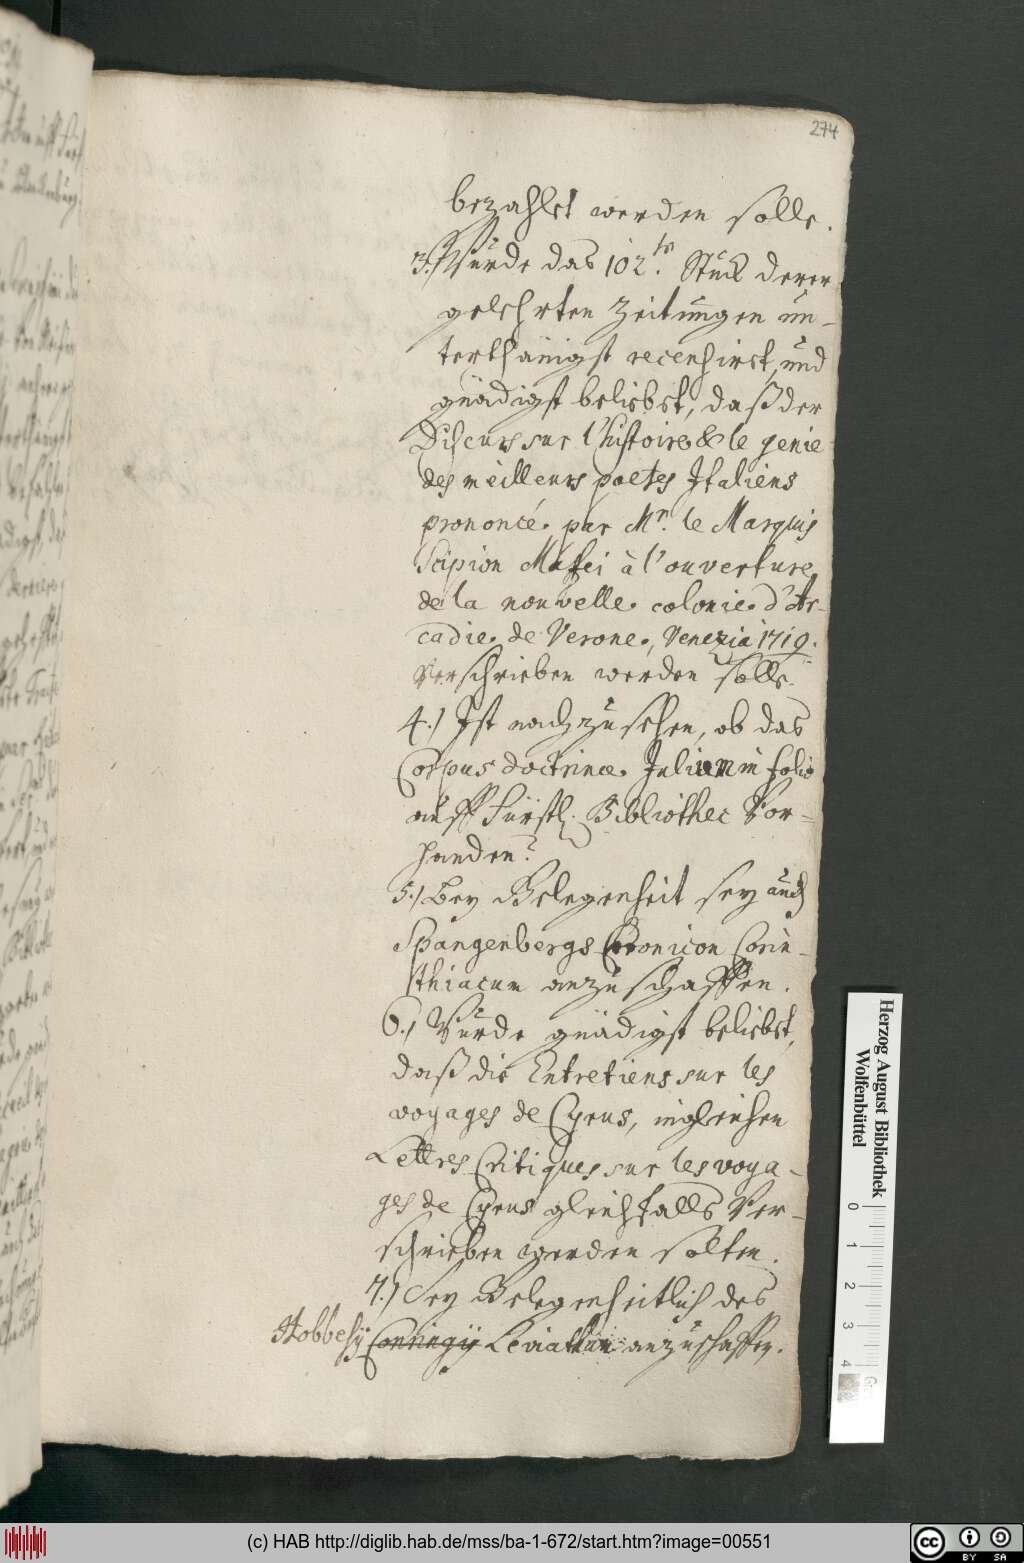 274
bezahlet werden solle.
3.) Wurde das 102.te Stück derer
gelehrten Zeitungen un-
terthänigst recensiret, und
gnädigst beliebet, daß der
Discurs sur l'histoire & le genie
des meilleurs poetes Italiens
prononcé par Mr. le Marquis
Scipion Mafei à l'ouverture
de la nouvelle colonie d'Ar-
cadie de Verone, Venezia 1719.
verschrieben werden solle.
4.) Ist nachzusehen, ob das
Corpus doctrinæ Julium in folio
auff Fürstl. Bibliothec vor-
handen?
5.) Bey Gelegenheit sey auch
Spangenbergs Chronicon Corin-
thiacum anzuschaffen.
6.) Wurde gnädigst beliebet,
daß die Entretiens sur les
voyages de Cyrus, ingleichen
Lettres Critiques sur les voya-
ges de Cyrus gleichfalls ver-
schrieben werden solten.
7.) Sey Gelegenheitlich des
Hobbesij Conringij Leviathan anzuschaffen.
Herzog August Bibliothek
Wolfenbüttel
0 1 2 3 4
(c) HAB http://diglib.hab.de/mss/ba-1-672/start.htm?image=00551
CC BY SA